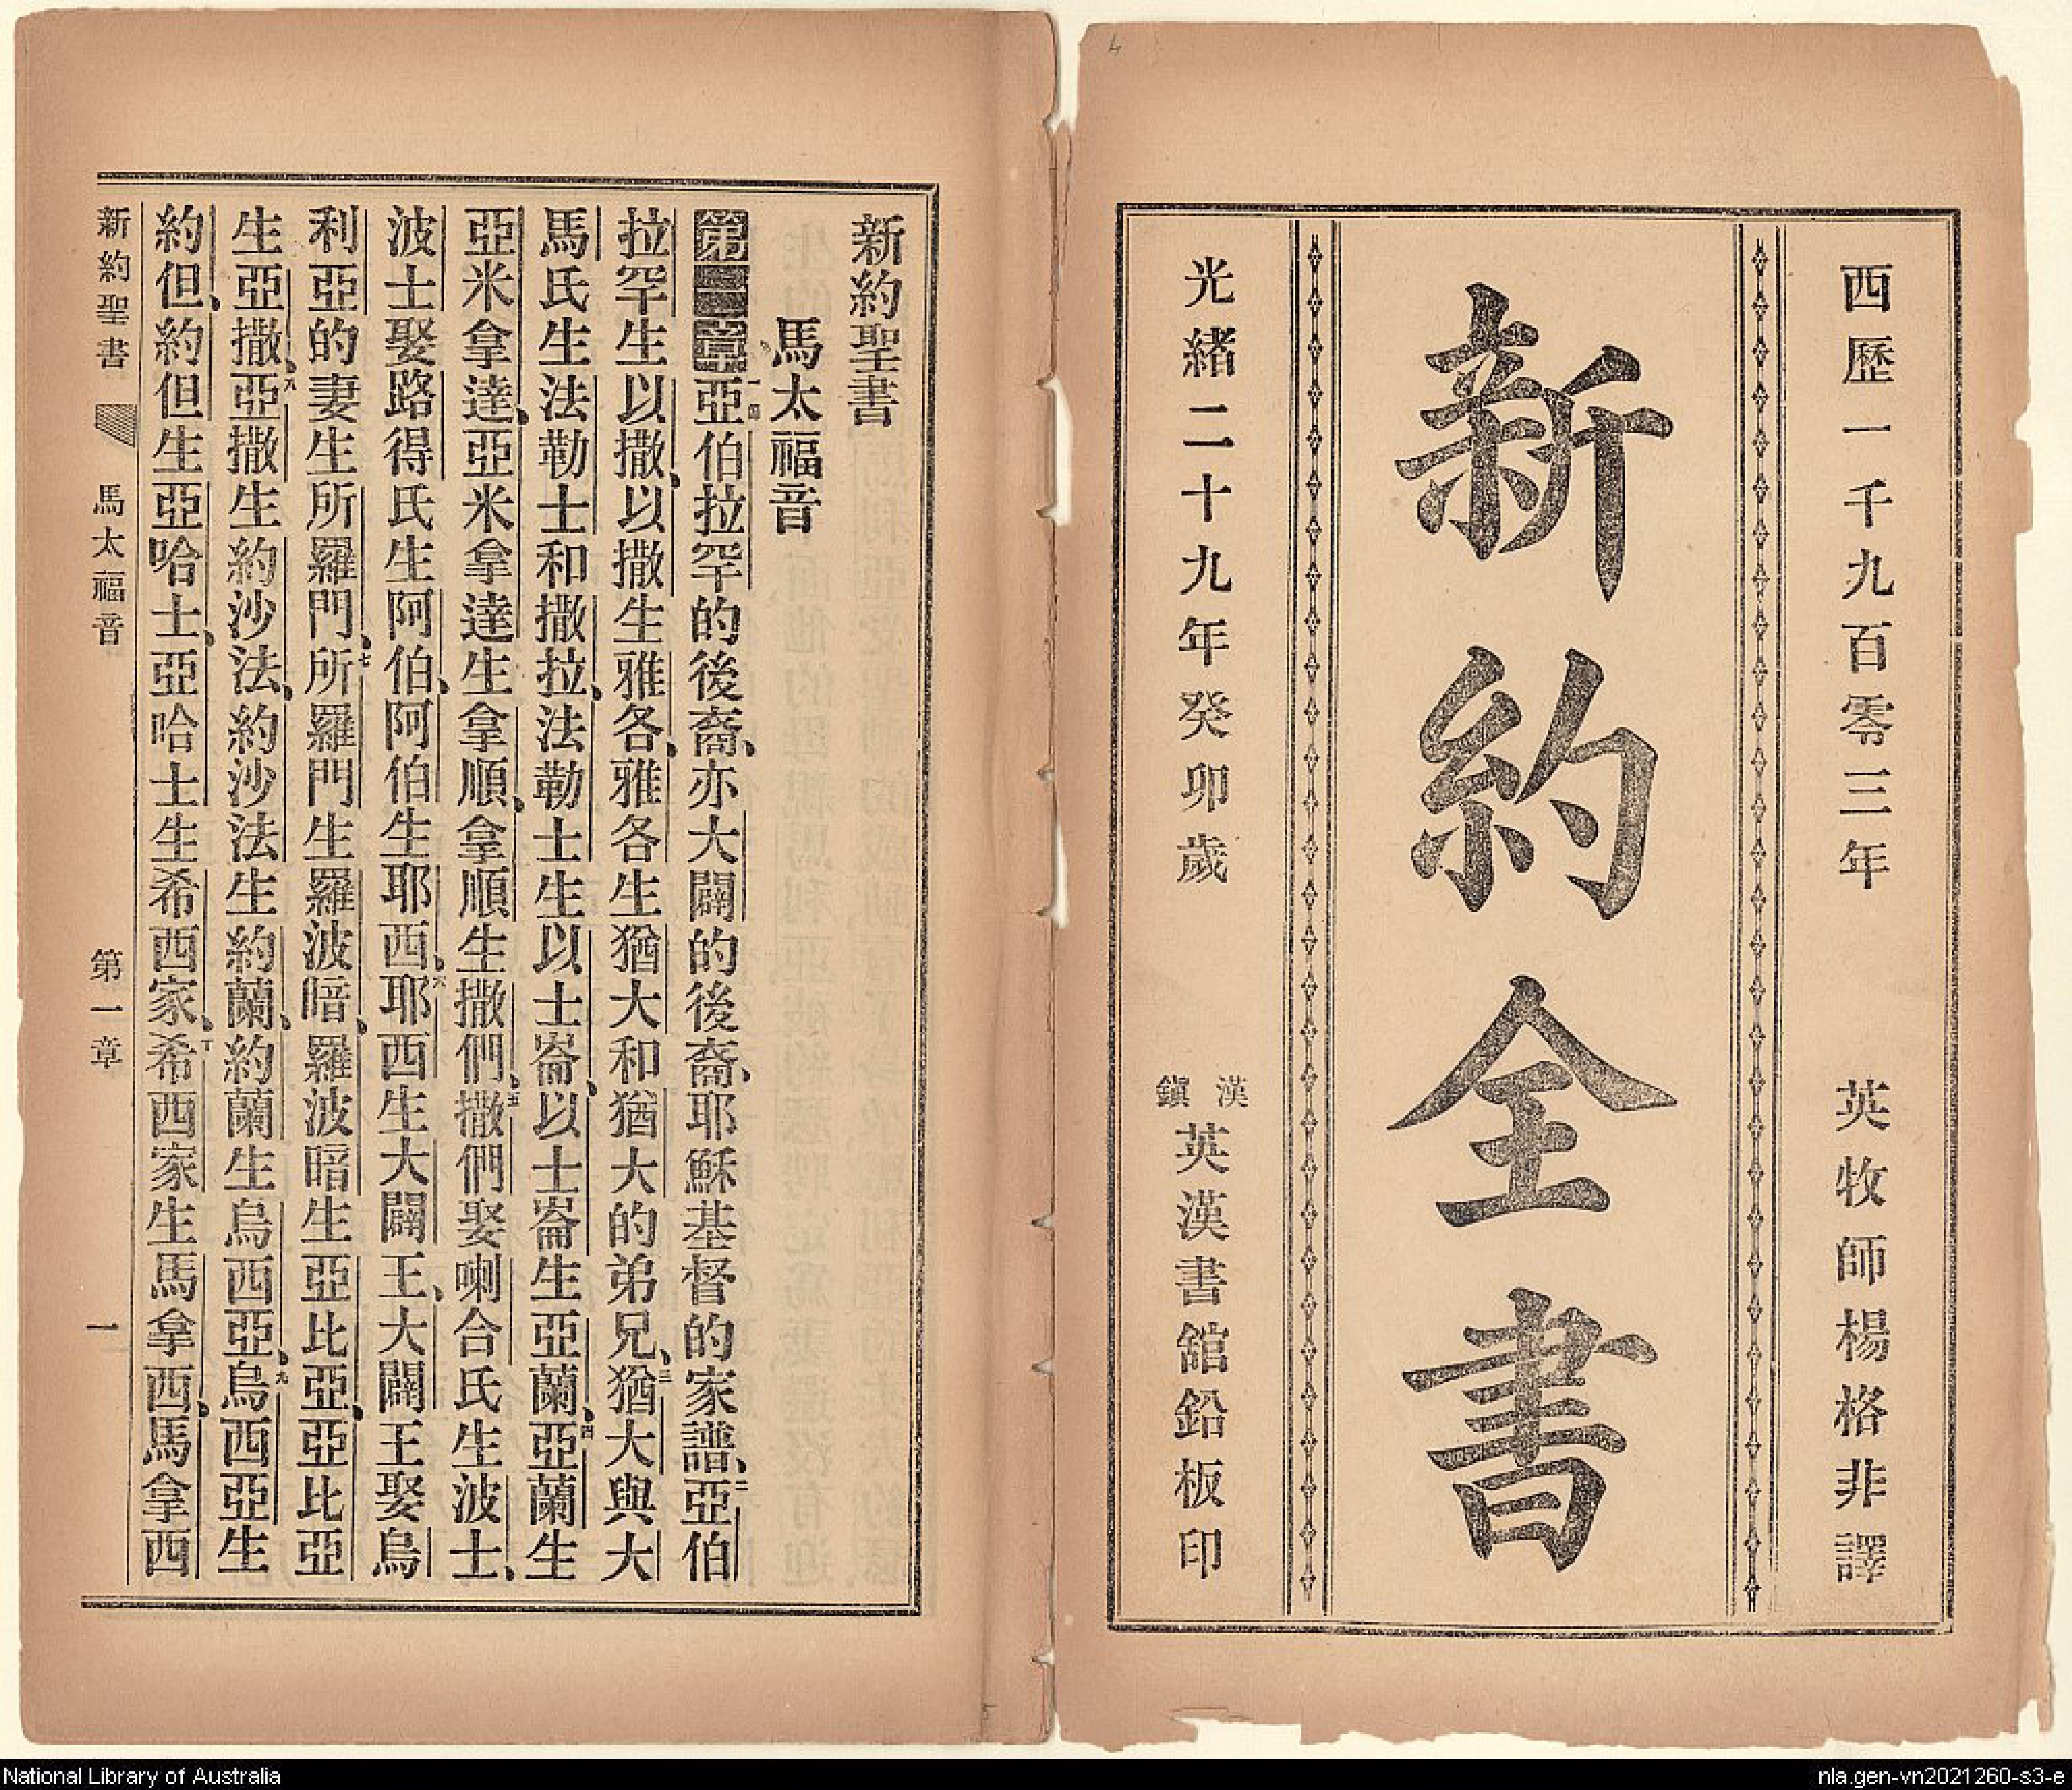 西歷一千九百零三年 英牧師楊格非譯
新約全書
光緒二十九年癸卯歲 漢鎭英漢書舘鉛板印
新約聖書
馬太福音
第一章 一亞伯拉罕的後裔、亦大闢的後裔、耶穌基督的家譜、二亞伯
拉罕生以撒、以撒生雅各、雅各生猶大和猶大的弟兄、三猶大與大
馬氏生法勒士和撒拉、法勒士生以士崙、以士崙生亞蘭、四亞蘭生
亞米拿達、亞米拿達生拿順、拿順生撒們、五撒們娶喇合氏生波士、
波士娶路得氏生阿伯、阿伯生耶西、六耶西生大闢王、大闢王娶烏
利亞的妻生所羅門、七所羅門生羅波暗、羅波暗生亞比亞、亞比亞
生亞撒、八亞撒生約沙法、約沙法生約蘭、約蘭生烏西亞、九烏西亞生
約但、約但生亞哈士、亞哈士生希西家、十希西家生馬拿西、馬拿西
新約聖書 馬太福音 第一章 一
National Library of Australia
nla.gen-vn2021260-s3-e